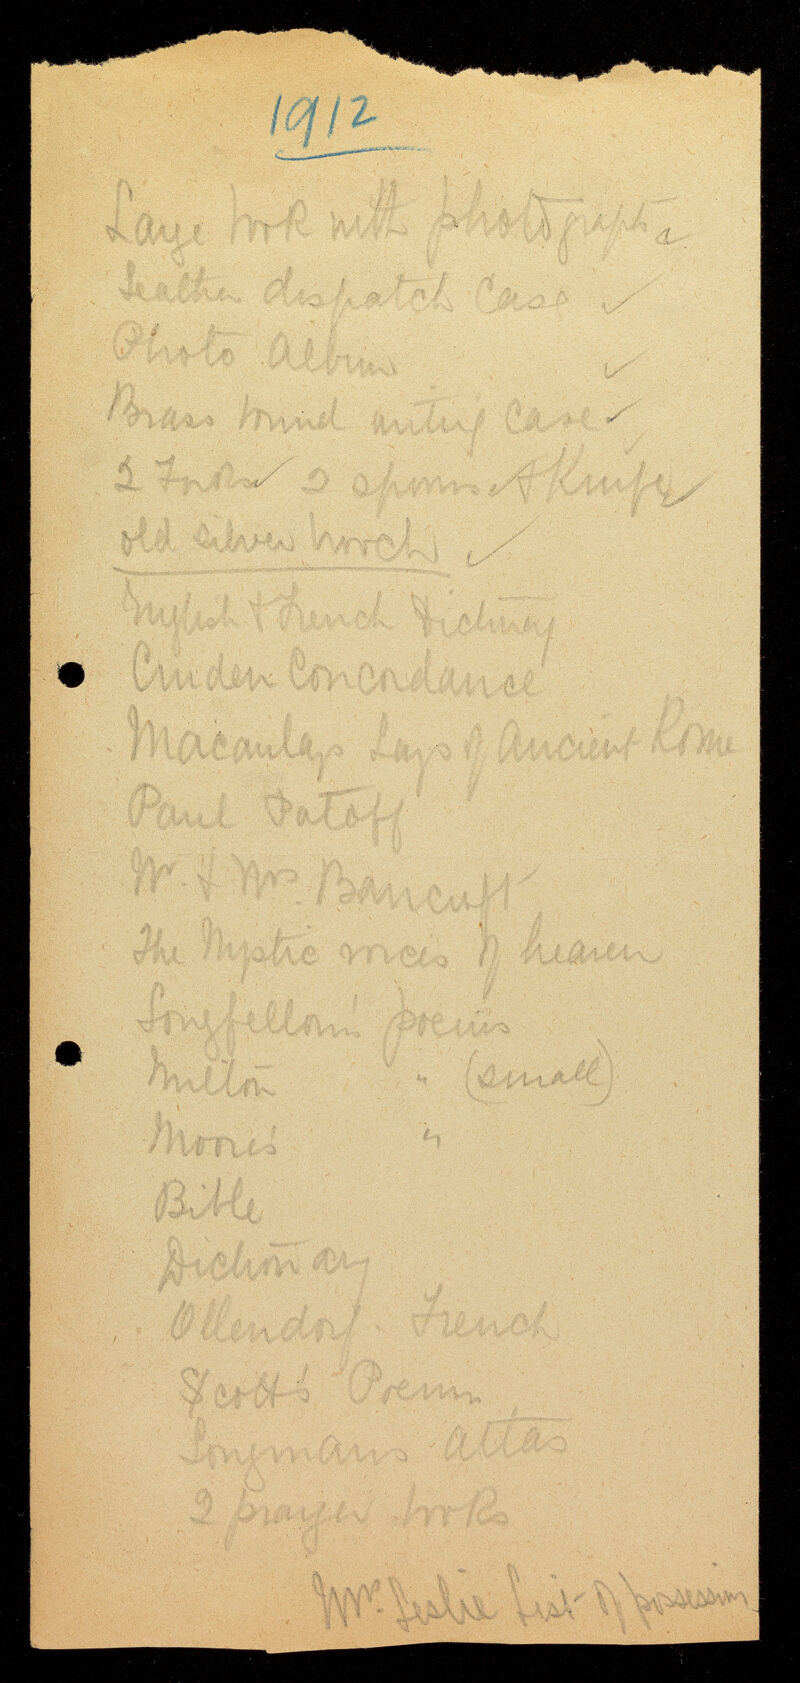 1912
Large book with photographs ✓
Leather dispatch case ✓
Photo Album ✓
Brass bound writing case ✓
2 Forks ✓ 2 spoons & Knife ✓
old silver brooch ✓
English & French Dictionary
Cruden Concordance
Macaulays Lays of Ancient Rome
Paul Patoff
Mr. & Mrs. Bancroft
The Mystic voices of heaven
Longfellow's poems
Milton " (small)
Moore's "
Bible
Dictionary
Ollendorf. French
Scott's Poems
Longmans atlas
2 prayer books
Mr. Leslie List of possessions